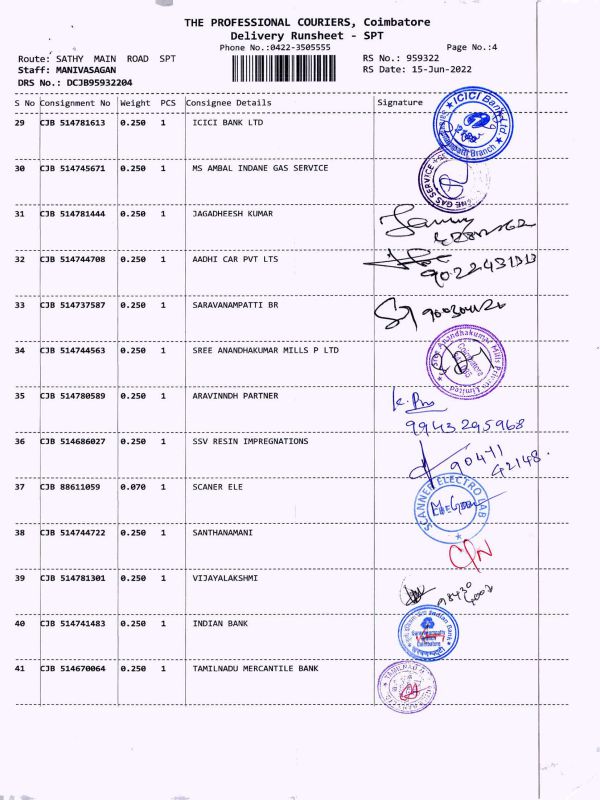 THE PROFESSIONAL COURIERS, Coimbatore
Delivery Runsheet - SPT
Phone No.:0422-3505555 Page No.:4
Route: SATHY MAIN ROAD SPT RS No.: 959322
Staff: MANIVASAGAN RS Date: 15-Jun-2022
DRS No.: DCJB95932204
S No Consignment No Weight PCS Consignee Details Signature
29 CJB 514781613 0.250 1 ICICI BANK LTD
ICICI Bank Ltd
Branch
30 CJB 514745671 0.250 1 MS AMBAL INDANE GAS SERVICE
GAS SERVICE
31 CJB 514781444 0.250 1 JAGADHEESH KUMAR
32 CJB 514744708 0.250 1 AADHI CAR PVT LTS
9022431313
33 CJB 514737587 0.250 1 SARAVANAMPATTI BR
34 CJB 514744563 0.250 1 SREE ANANDHAKUMAR MILLS P LTD
Sree Anandhakumar Mills Private Limited
Coimbatore
35 CJB 514780589 0.250 1 ARAVINNDH PARTNER
9943295968
36 CJB 514686027 0.250 1 SSV RESIN IMPREGNATIONS
90471
42148.
37 CJB 88611059 0.070 1 SCANER ELE
SCANNER ELECTRO LAB
38 CJB 514744722 0.250 1 SANTHANAMANI
39 CJB 514781301 0.250 1 VIJAYALAKSHMI
40 CJB 514741483 0.250 1 INDIAN BANK
Indian Bank
41 CJB 514670064 0.250 1 TAMILNADU MERCANTILE BANK